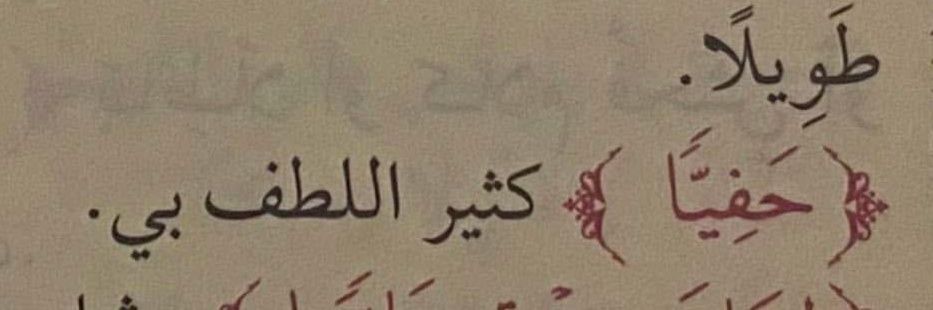 طَوِيلًا.
﴿ حَفِيًّا ﴾ كثير اللطف بي.